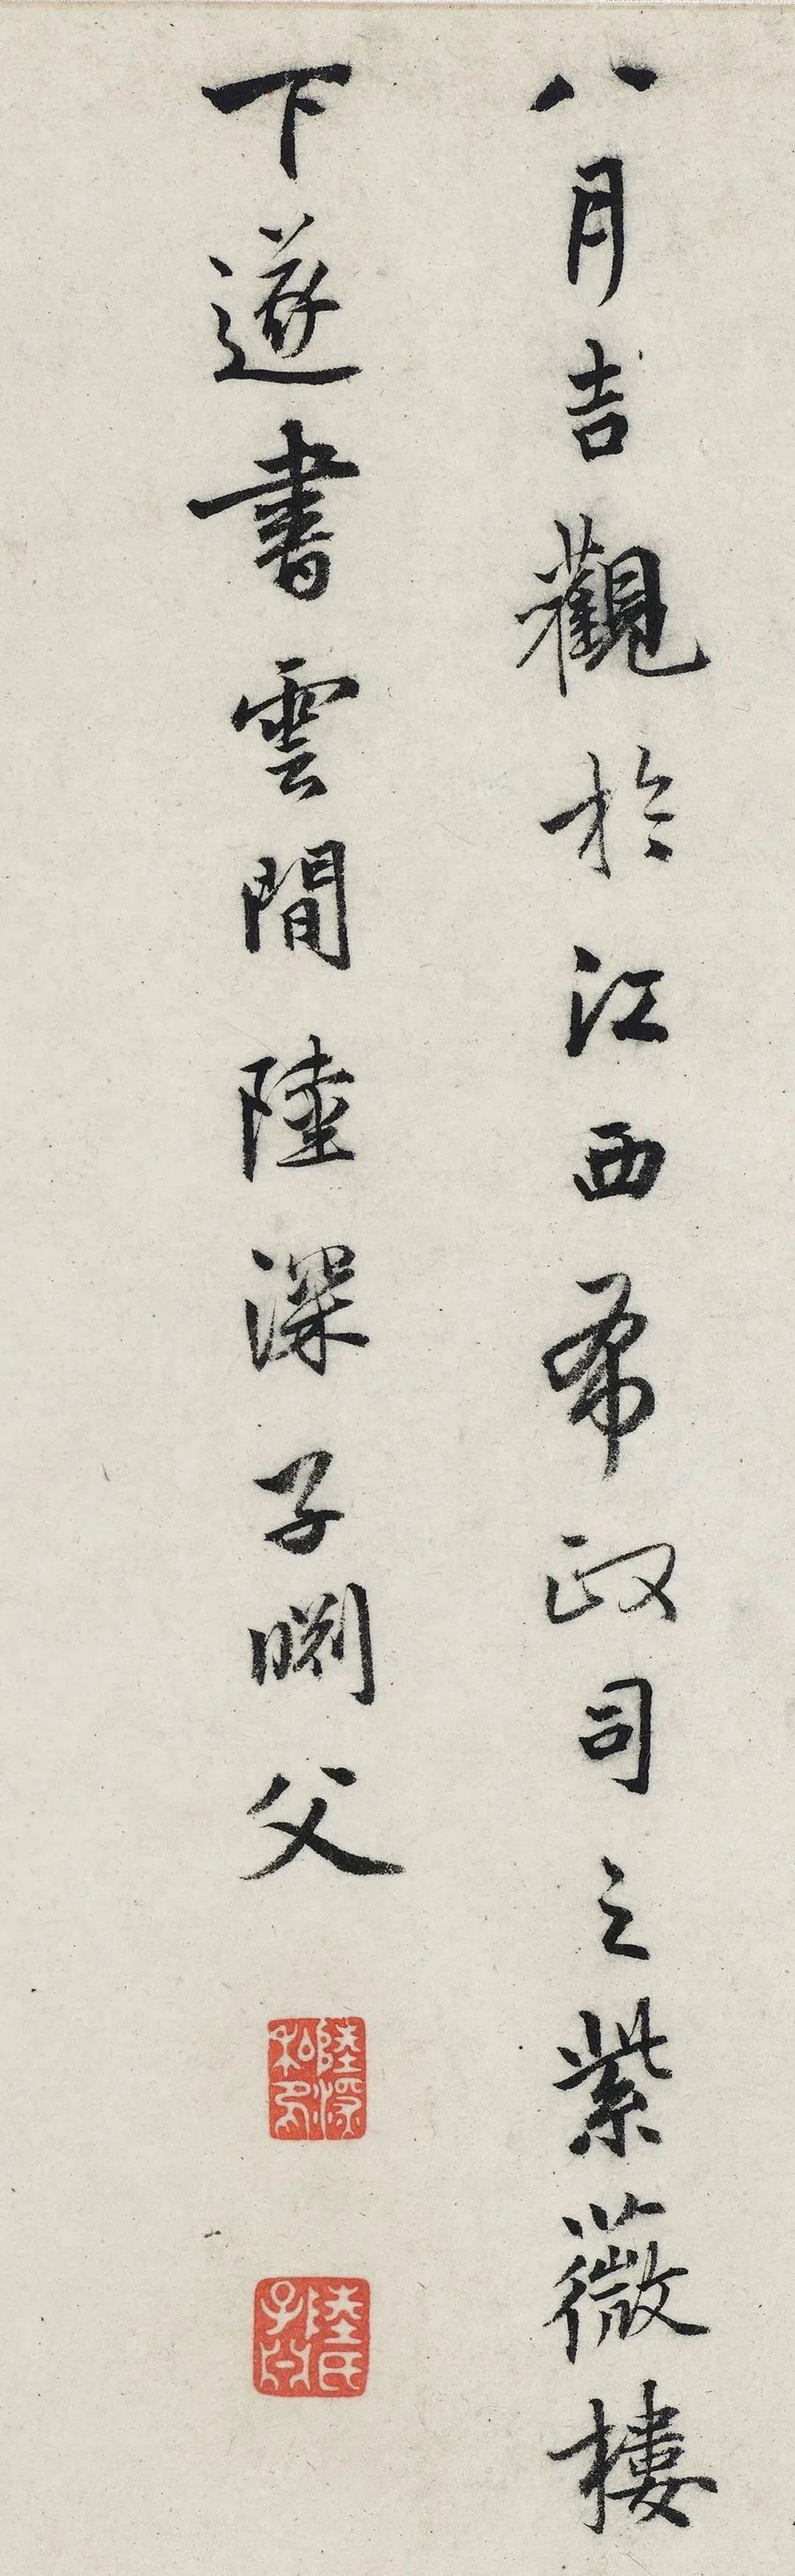 八月吉觀於江西布政司之紫薇樓
下遂書雲間陸深子淵父
陸深私印
陸氏子淵